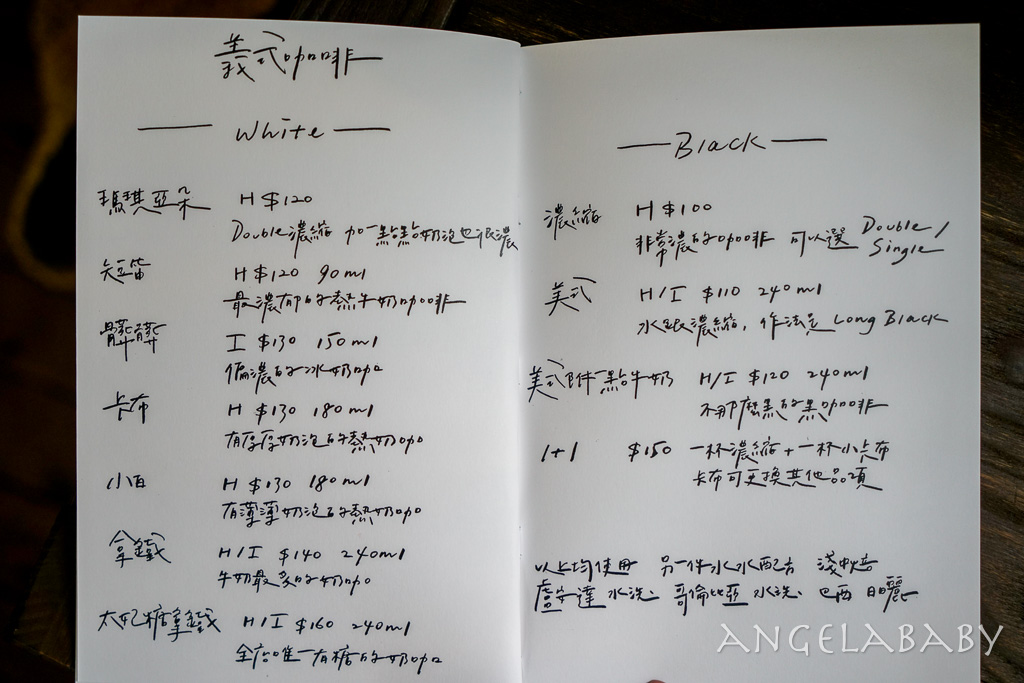 義式咖啡
— White —
瑪琪亞朵 H $120
Double濃縮 加一點點奶泡也很濃
短笛 H $120 90ml
最濃郁的熱牛奶咖啡
髒髒 I $130 150ml
偏濃的冰奶咖
卡布 H $130 180ml
有厚厚奶泡的熱奶咖
小白 H $130 180ml
有薄薄奶泡的熱奶咖
拿鐵 H/I $140 240ml
牛奶最多的奶咖
太妃糖拿鐵 H/I $160 240ml
全店唯一有糖的奶咖
— Black —
濃縮 H $100
非常濃的咖啡 可以選 Double/
Single
美式 H/I $110 240ml
水跟濃縮, 作法是 Long Black
美式附一點牛奶 H/I $120 240ml
不那麼黑的黑咖啡
1+1 $150 一杯濃縮+一杯小卡布
卡布可更換其他品項
以上均使用 另一件水水配方 淺中焙
盧安達 水洗、哥倫比亞 水洗、巴西 日曬
ANGELABABY